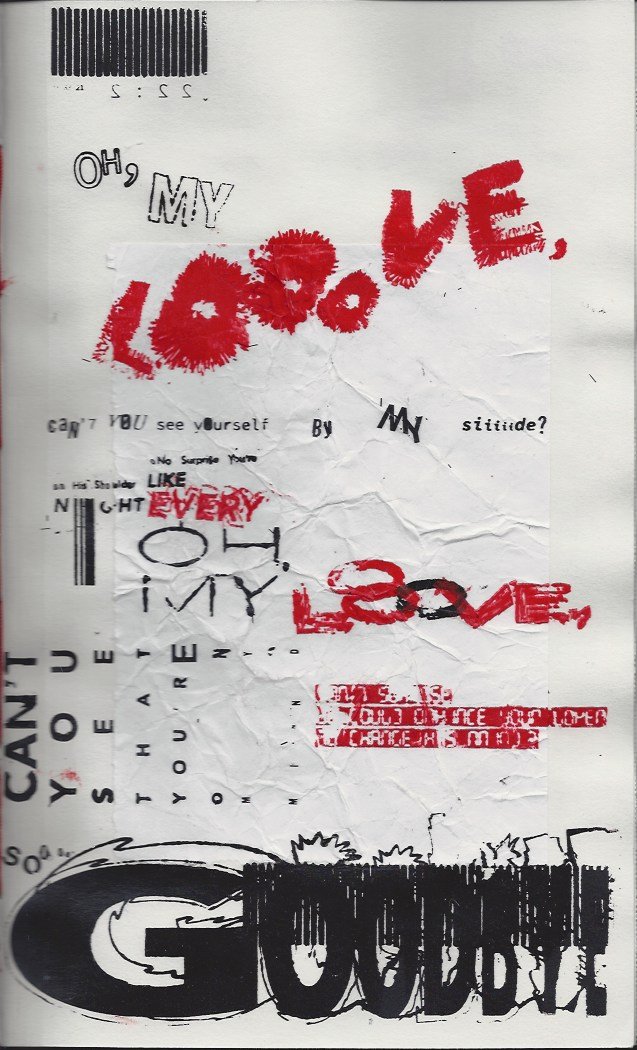 21
OH, MY
LOOOOVE,
can't YOU see yourself By MY siiiiide?
No Surprise You're
on His Shoulder LIKE
NIGHT EVERY
LOOOVE,
CAN'T
YOU
SEE
THAT
YOU'RE
ON
MY
MIND
SO
GOODBY!